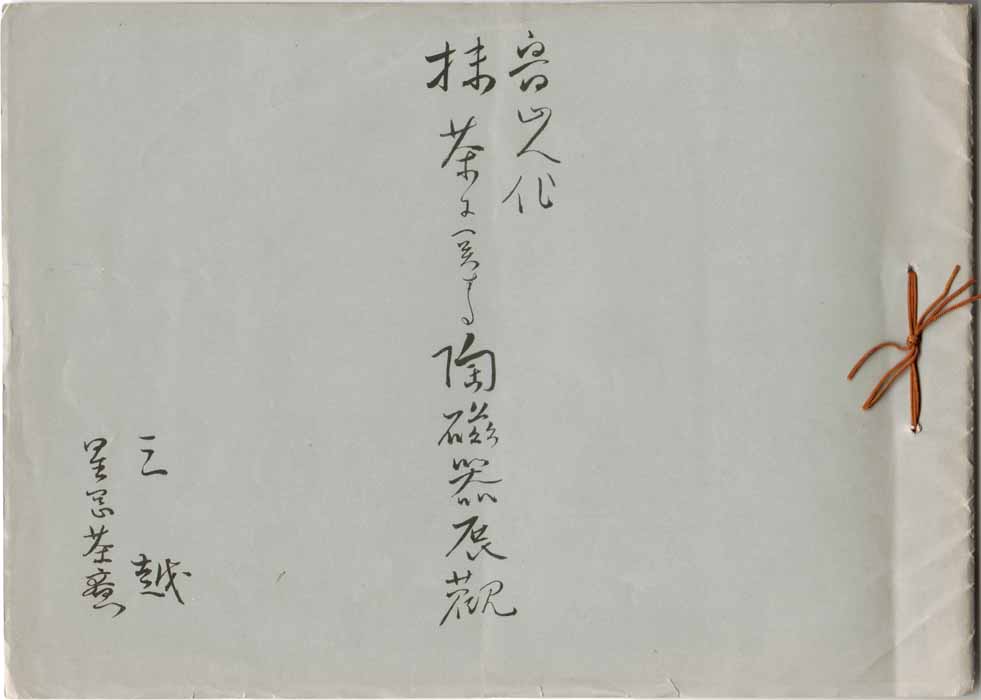 魯山人作
抹茶に関する陶磁器展観
三越
星岡茶寮